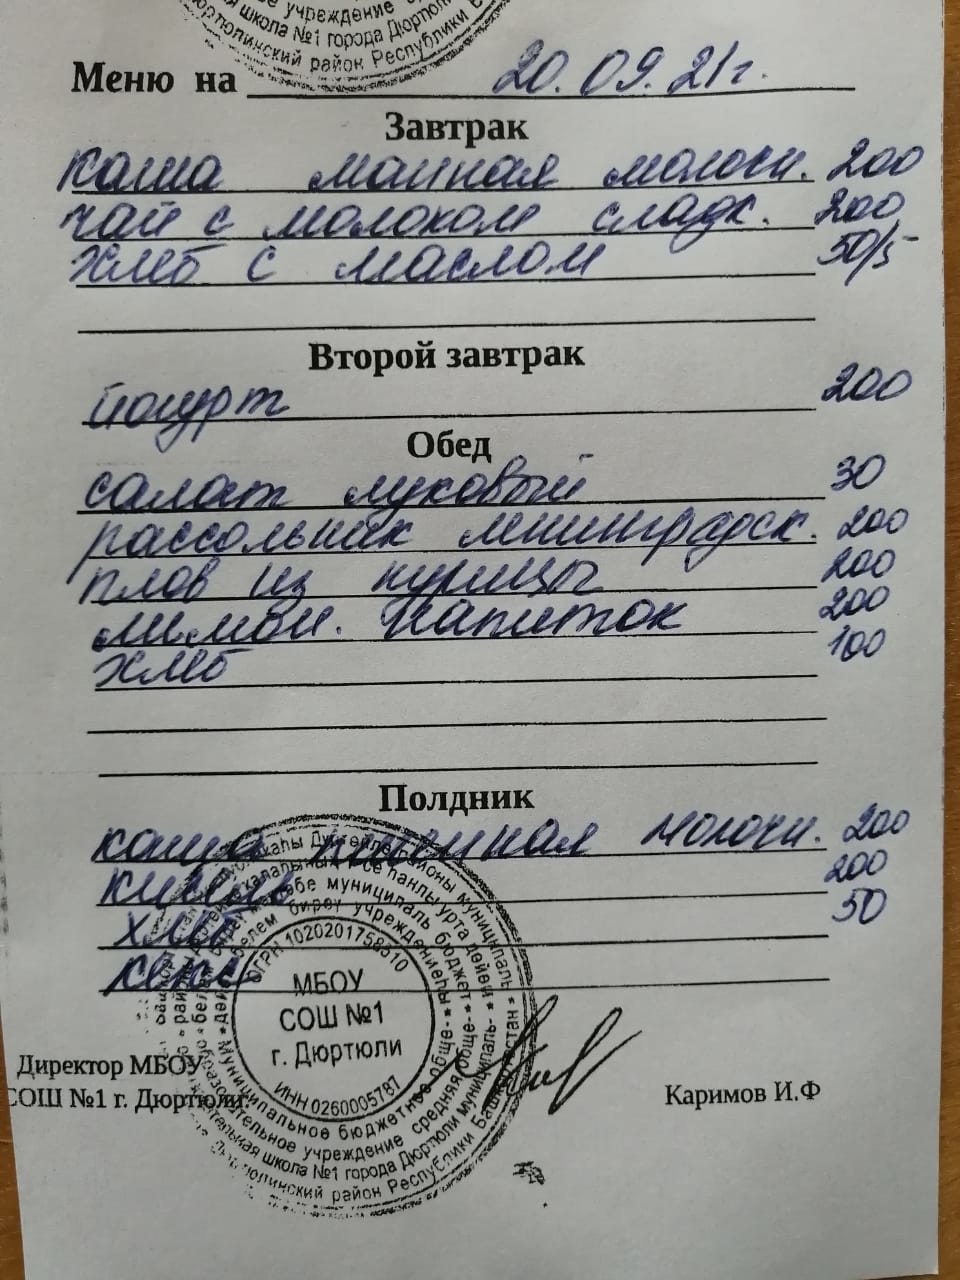 ное учреждение
ая школа №1 города Дюртюли
Дюртюлинский район Республики
Меню на 20.09.21г.
Завтрак
каша манная молочн. 200
чай с молоком сладк. 200
хлеб с маслом 50/5
Второй завтрак
йогурт 200
Обед
салат луковый 30
рассольник ленинградск. 200
плов из курицы 200
лимон. напиток 200
хлеб 100
Полдник
каша молочн. 200
кисель 200
хлеб 50
кекс
ОГРН 1020201758510
МБОУ
СОШ №1
г. Дюртюли
ИНН 0260005787
Муниципальное бюджетное обще-
образовательное учреждение средняя обще-
образовательная школа №1 города Дюртюли муниципаль-
Дюртюлинский район Республики Башкортостан
Директор МБОУ
СОШ №1 г. Дюртюли:
Каримов И.Ф